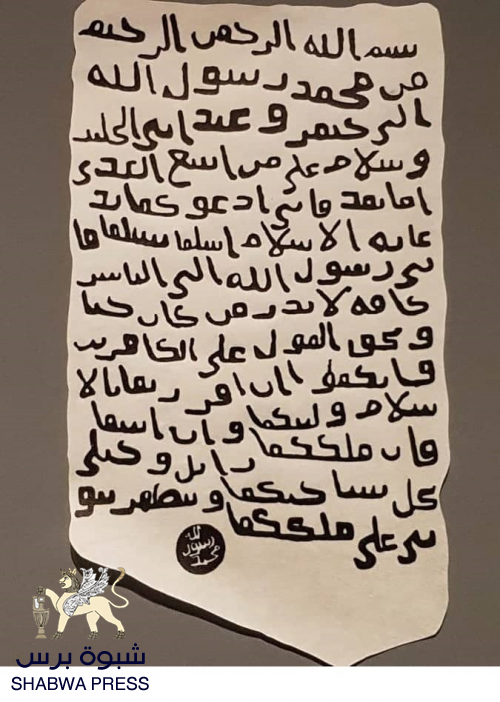 بسم الله الرحمن الرحيم
من محمد رسول الله
الى جيفر وعبد ابني الجلند
وسلام على من اتبع الهدى
اما بعد فاني ادعوكما بد
عايه الاسلام اسلما تسلما فا
ني رسول الله الى الناس
كافه لانذر من كان حيا
ويحق القول على الكافرين
فانكما ان اقررتما بالا
سلام وليتكما وان ابيتما
فان ملككما زايل وخيلي
تحل بساحتكما وتظهر نبو
تي على ملككما
الله
رسول
محمد
شبوة برس
SHABWA PRESS